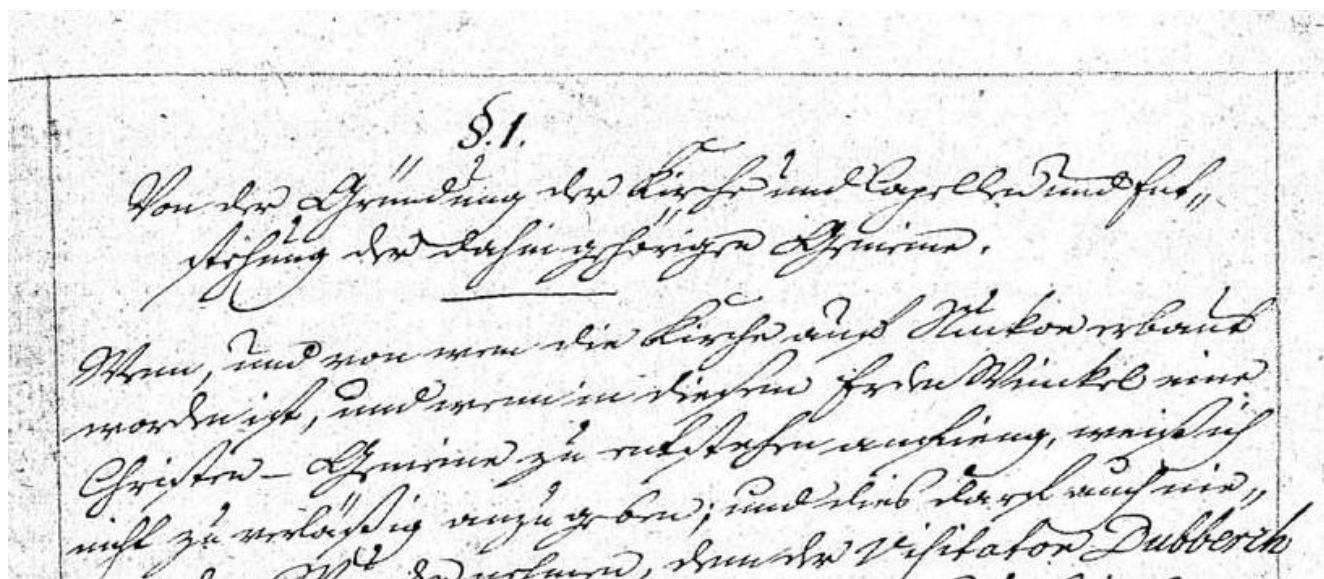 §. 1.
Von der Gründung der Kirche und Capellen und Ent„
stehung der dahin gehörigen Gemeine.
Wenn, und von wem die Kirche auf Nuckoe erbaut
worden ist, und wenn in diesem Erden Winckel eine
Christen - Gemeine zu entstehen anfieng, weiß ich
nicht zuverläßig anzugeben; und dies darf auch nie„
nehmen, denn der Visitator Dubberch